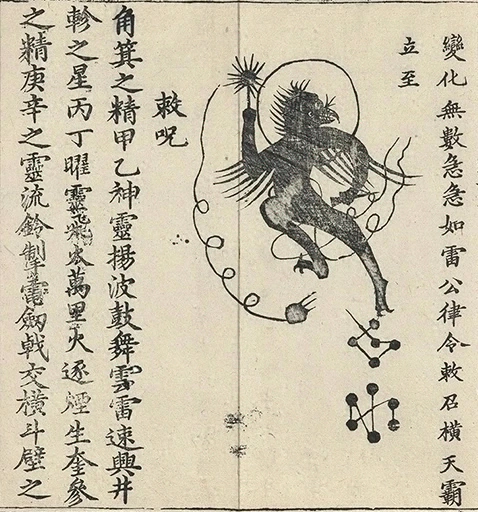 變化無數急急如雷公律令敕召橫天霸
立至
敕呪
角箕之精甲乙神靈揚波鼓舞雲雷速興井
軫之星丙丁曜靈飛炎萬里火逐煙生奎參
之精庚辛之靈流鈴掣電劔戟交橫斗壁之